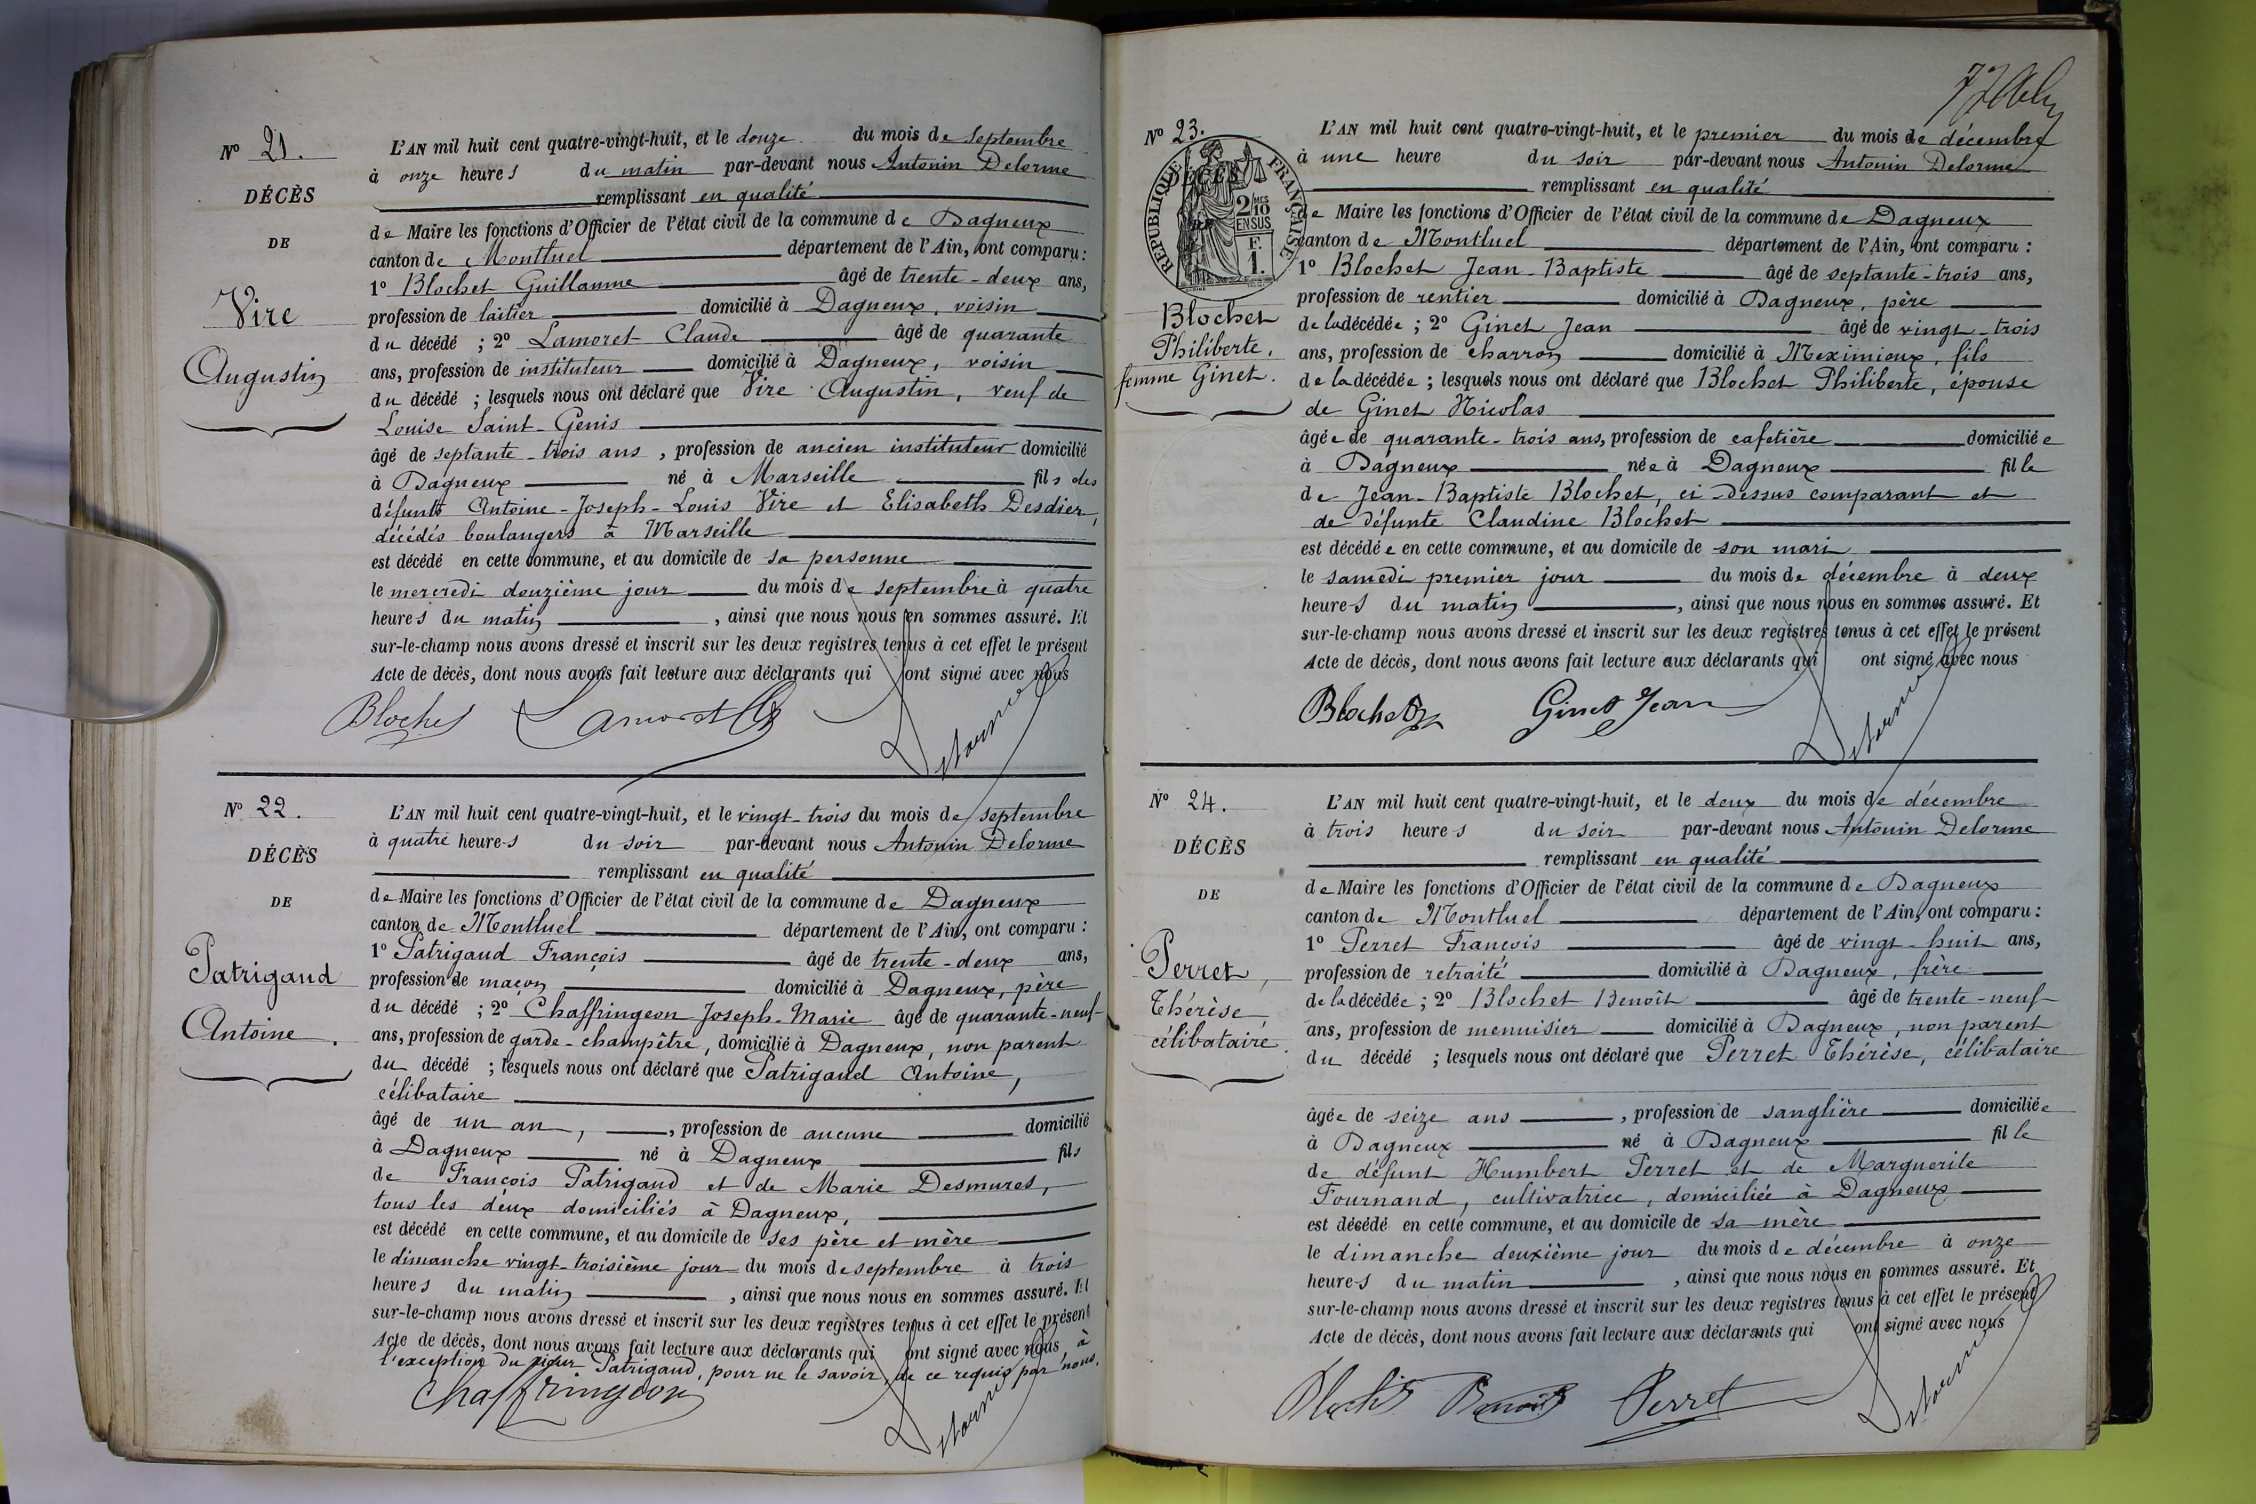 Nº 21.
DÉCÈS
DE
Vire
Augustin
L'AN mil huit cent quatre-vingt-huit, et le douze du mois de septembre
à onze heures du matin par-devant nous Antonin Delorme
remplissant en qualité
de Maire les fonctions d'Officier de l'état civil de la commune de Dagneux
canton de Montluel département de l'Ain, ont comparu :
1º Blochet Guillaume âgé de trente-deux ans,
profession de laitier domicilié à Dagneux, voisin
du décédé ; 2º Lamoret Claude âgé de quarante
ans, profession de instituteur domicilié à Dagneux, voisin
du décédé ; lesquels nous ont déclaré que Vire Augustin, veuf de
Louise Saint-Genis
âgé de septante-trois ans, profession de ancien instituteur domicilié
à Dagneux né à Marseille fils des
défunts Antoine-Joseph-Louis Vire et Elisabeth Desdier,
décédés boulangers à Marseille
est décédé en cette commune, et au domicile de sa personne
le mercredi douzième jour du mois de septembre à quatre
heures du matin, ainsi que nous nous en sommes assuré. Et
sur-le-champ nous avons dressé et inscrit sur les deux registres tenus à cet effet le présent
Acte de décès, dont nous avons fait lecture aux déclarants qui ont signé avec nous
Blochet Lamoret Cl Delorme
Nº 22.
DÉCÈS
DE
Patrigaud
Antoine.
L'AN mil huit cent quatre-vingt-huit, et le vingt-trois du mois de septembre
à quatre heures du soir par-devant nous Antonin Delorme
remplissant en qualité
de Maire les fonctions d'Officier de l'état civil de la commune de Dagneux
canton de Montluel département de l'Ain, ont comparu :
1º Patrigaud François âgé de trente-deux ans,
profession de maçon domicilié à Dagneux, père
du décédé ; 2º Chaffringeon Joseph-Marie âgé de quarante-neuf
ans, profession de garde-champêtre, domicilié à Dagneux, non parent
du décédé ; lesquels nous ont déclaré que Patrigaud Antoine,
célibataire
âgé de un an, profession de aucune domicilié
à Dagneux né à Dagneux fils
de François Patrigaud et de Marie Desmures,
tous les deux domiciliés à Dagneux,
est décédé en cette commune, et au domicile de ses père et mère
le dimanche vingt-troisième jour du mois de septembre à trois
heures du matin, ainsi que nous nous en sommes assuré. Et
sur-le-champ nous avons dressé et inscrit sur les deux registres tenus à cet effet le présent
Acte de décès, dont nous avons fait lecture aux déclarants qui ont signé avec nous à
l'exception du sieur Patrigaud, pour ne le savoir, de ce requis par nous.
Chaffringeon Delorme
Nº 23.
DÉCÈS
RÉPUBLIQUE FRANÇAISE
2/10 EN SUS
F. 1.
Blochet
Philiberte,
femme Ginet.
L'AN mil huit cent quatre-vingt-huit, et le premier du mois de décembre
à une heure du soir par-devant nous Antonin Delorme
remplissant en qualité
de Maire les fonctions d'Officier de l'état civil de la commune de Dagneux
canton de Montluel département de l'Ain, ont comparu :
1º Blochet Jean-Baptiste âgé de septante-trois ans,
profession de rentier domicilié à Dagneux, père
de la décédée ; 2º Ginet Jean âgé de vingt-trois
ans, profession de charron domicilié à Meximieux, fils
de la décédée ; lesquels nous ont déclaré que Blochet Philiberte, épouse
de Ginet Nicolas
âgée de quarante-trois ans, profession de cafetière domiciliée
à Dagneux née à Dagneux fille
de Jean-Baptiste Blochet, ci-dessus comparant et
de défunte Claudine Blochet
est décédée en cette commune, et au domicile de son mari
le samedi premier jour du mois de décembre à deux
heures du matin, ainsi que nous nous en sommes assuré. Et
sur-le-champ nous avons dressé et inscrit sur les deux registres tenus à cet effet le présent
Acte de décès, dont nous avons fait lecture aux déclarants qui ont signé avec nous
Blochet Ginet Jean Delorme
Nº 24.
DÉCÈS
DE
Perret,
Thérèse,
célibataire.
L'AN mil huit cent quatre-vingt-huit, et le deux du mois de décembre
à trois heures du soir par-devant nous Antonin Delorme
remplissant en qualité
de Maire les fonctions d'Officier de l'état civil de la commune de Dagneux
canton de Montluel département de l'Ain, ont comparu :
1º Perret François âgé de vingt-huit ans,
profession de retraité domicilié à Dagneux, frère
de la décédée ; 2º Blochet Benoît âgé de trente-neuf
ans, profession de menuisier domicilié à Dagneux, non parent
du décédé ; lesquels nous ont déclaré que Perret Thérèse, célibataire
âgée de seize ans, profession de sanglière domiciliée
à Dagneux né à Dagneux fille
de défunt Humbert Perret et de Marguerite
Fournand, cultivatrice, domiciliée à Dagneux
est décédé en cette commune, et au domicile de sa mère
le dimanche deuxième jour du mois de décembre à onze
heures du matin, ainsi que nous nous en sommes assuré. Et
sur-le-champ nous avons dressé et inscrit sur les deux registres tenus à cet effet le présent
Acte de décès, dont nous avons fait lecture aux déclarants qui ont signé avec nous
Blochet Benoît Perret Delorme